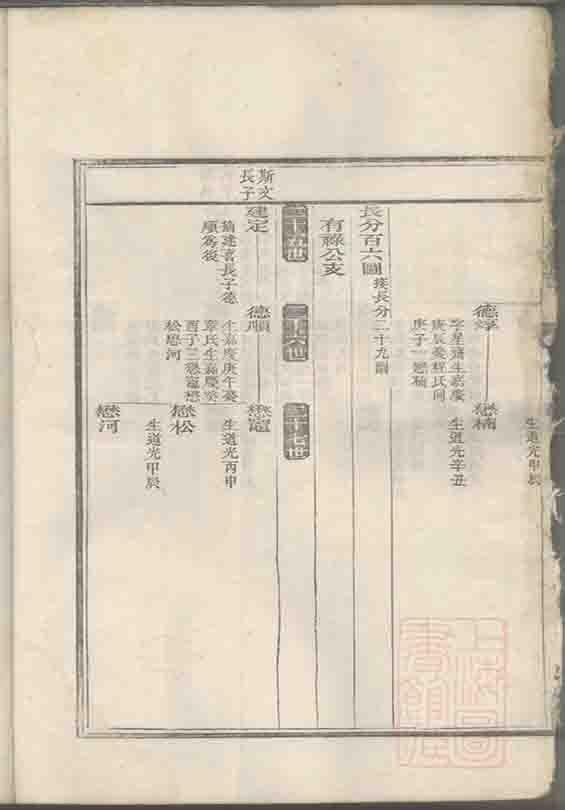 生道光甲辰
德焞
字星齋生嘉慶
庚辰娶程氏同
庚子一懋楠
懋楠
生道光辛丑
長分百六圖 接長分二十九圖
有祿公支
三十五世
三十六世
三十七世
斯文
長子
建定
繼建言長子德
順為後
德順
生嘉慶庚午娶
章氏生嘉慶癸
酉子三懋寵懋
松懋河
懋寵
生道光丙申
懋松
生道光甲辰
懋河
上海圖書館藏